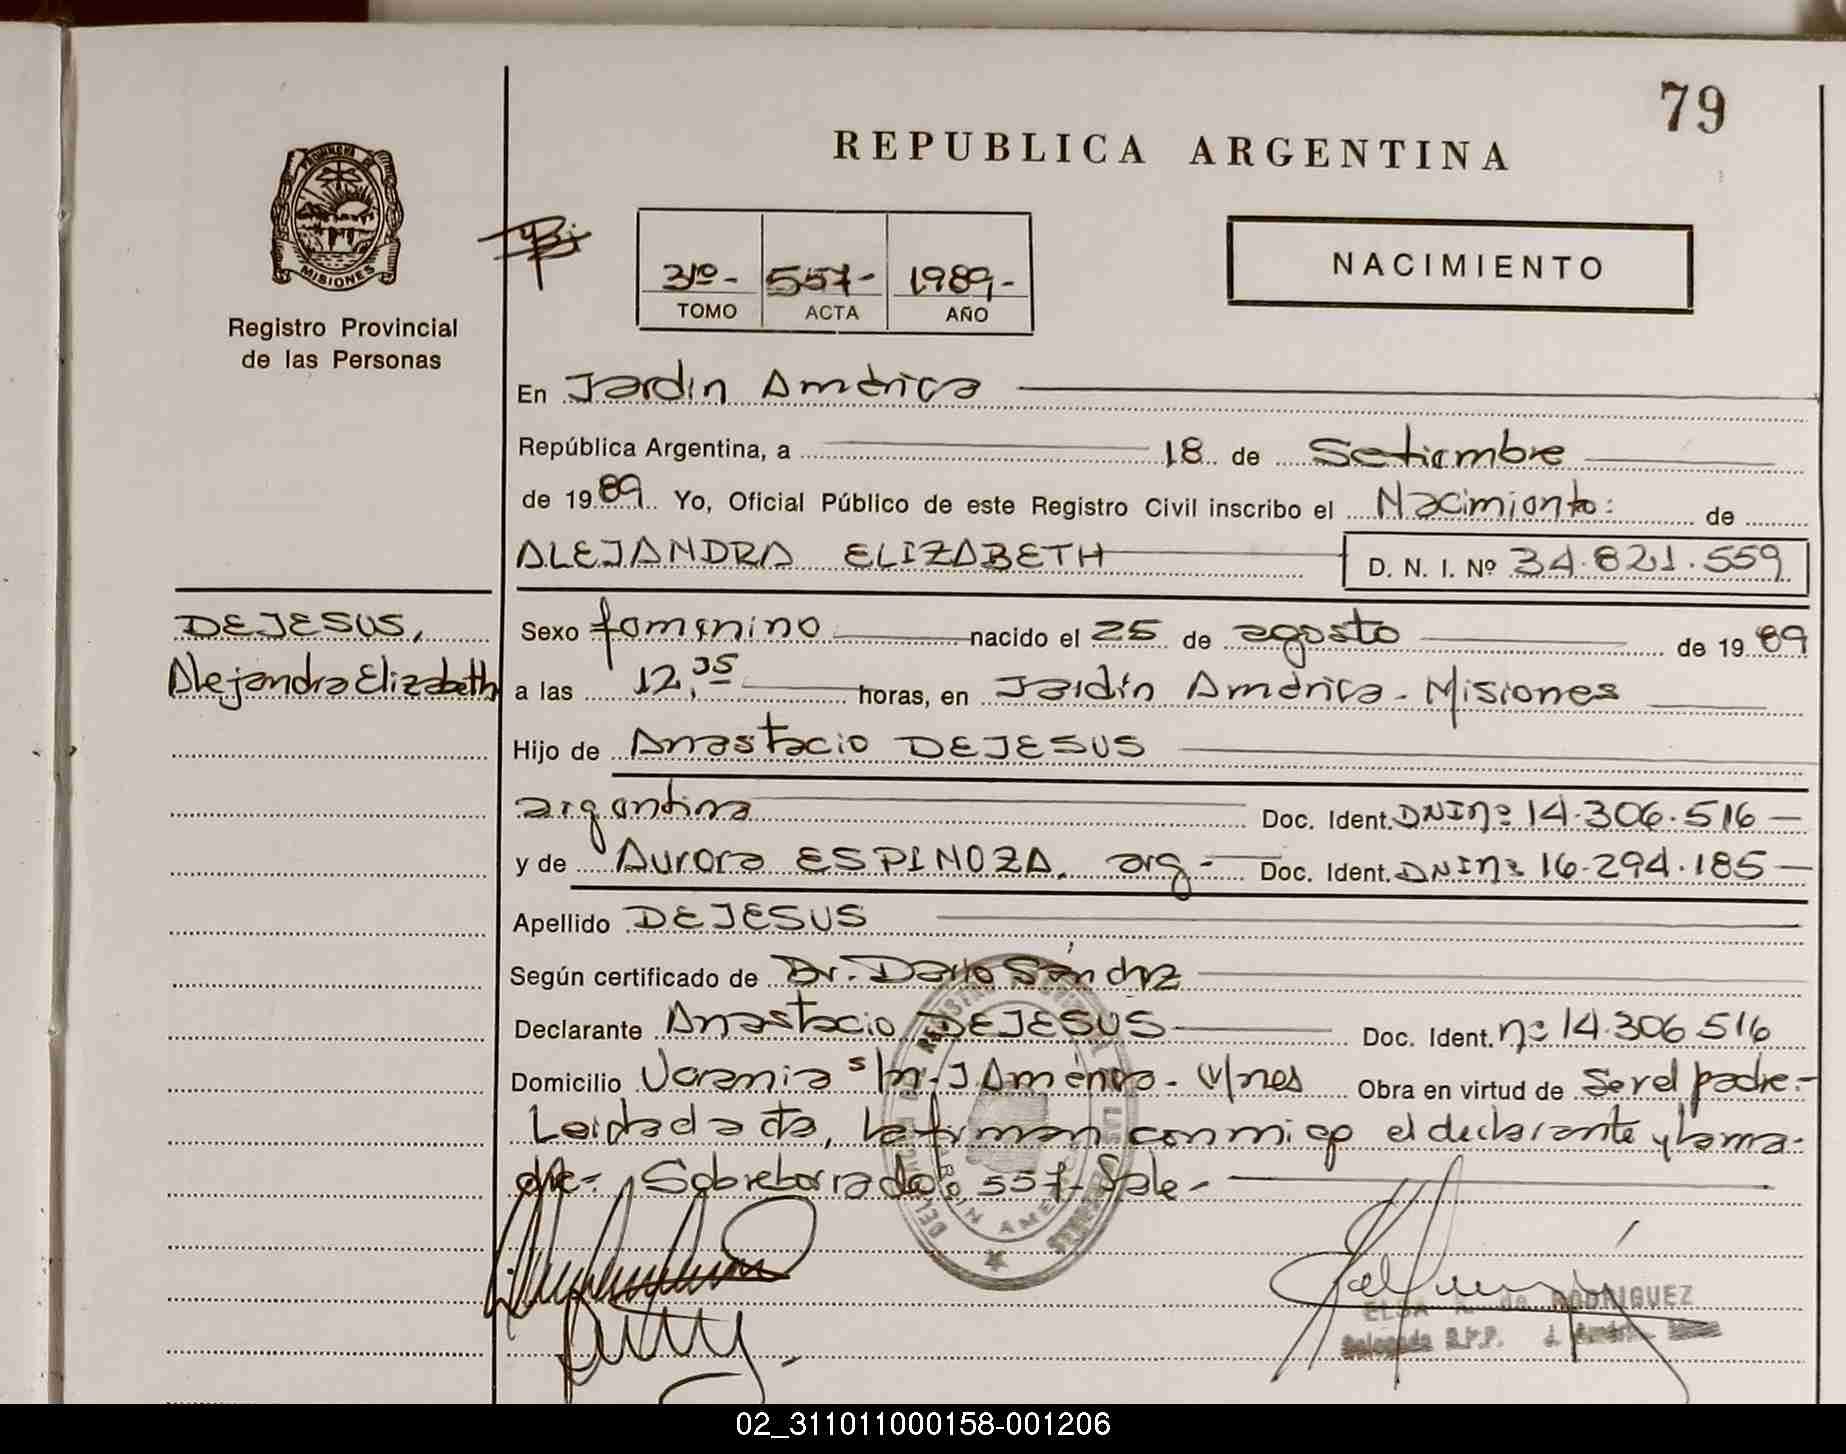 79
REPUBLICA ARGENTINA
MISIONES
Registro Provincial
de las Personas
3/º- 557- 1989-
TOMO ACTA AÑO
NACIMIENTO
En Jardin América
República Argentina, a 18 de Setiembre
de 1989 Yo, Oficial Público de este Registro Civil inscribo el Nacimiento: de
ALEJANDRA ELIZABETH D. N. I. Nº 34.821.559
DEJESUS,
Alejandra Elizabeth
Sexo femenino nacido el 25 de agosto de 1989
a las 12,35 horas, en Jardín América - Misiones
Hijo de Anastacio DEJESUS
argentina Doc. Ident. DNI nº 14.306.516 —
y de Aurora ESPINOZA, arg - Doc. Ident. DNI nº 16.294.185 —
Apellido DEJESUS
Según certificado de Dr. Darío Sánchez
Declarante Anastacio DEJESUS Doc. Ident. nº 14.306 516
Domicilio Ucrania s/n. J. América - Obra en virtud de Ser el padre.-
Leida el acta, la firman conmigo el declarante y la ma-
dre- Sobreborrado: 557- Vale-
ELSA de RODRIGUEZ
Delegada R.P.P.
02_311011000158-001206